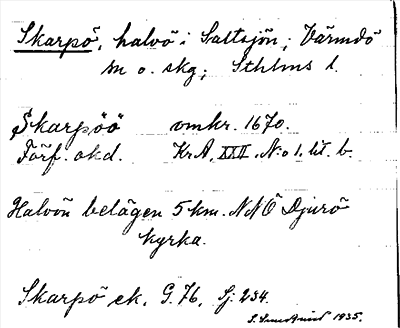 Skarpö, halvö i Saltsjön; Värmdö
m o. skg; Sthlms l.
Skarpöö omkr. 1670.
Förf. okd. Kr.A. XXII, N:o 1. lit. b.
Halvön belägen 5 km. NNÖ Djurö
kyrka.
Skarpö ek. G. 76, Sj. 234.
1935.